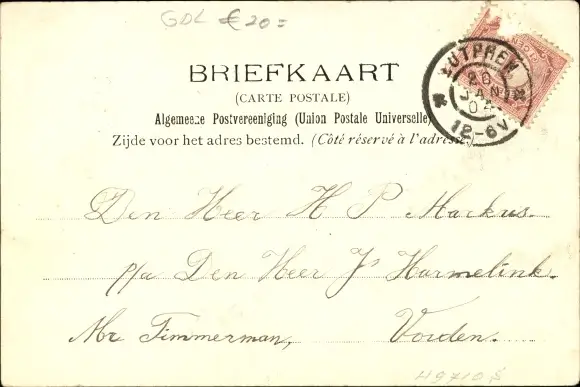 GDL € 20=
BRIEFKAART
(CARTE POSTALE)
Algemeene Postvereeniging (Union Postale Universelle)
Zijde voor het adres bestemd. (Côté réservé à l'adresse.)
ZUTPHEN
26
JAN
04
12-6V
Den Heer H P Markus.
p/a Den Heer Js Harmelink.
Mr Timmerman, Vorden.